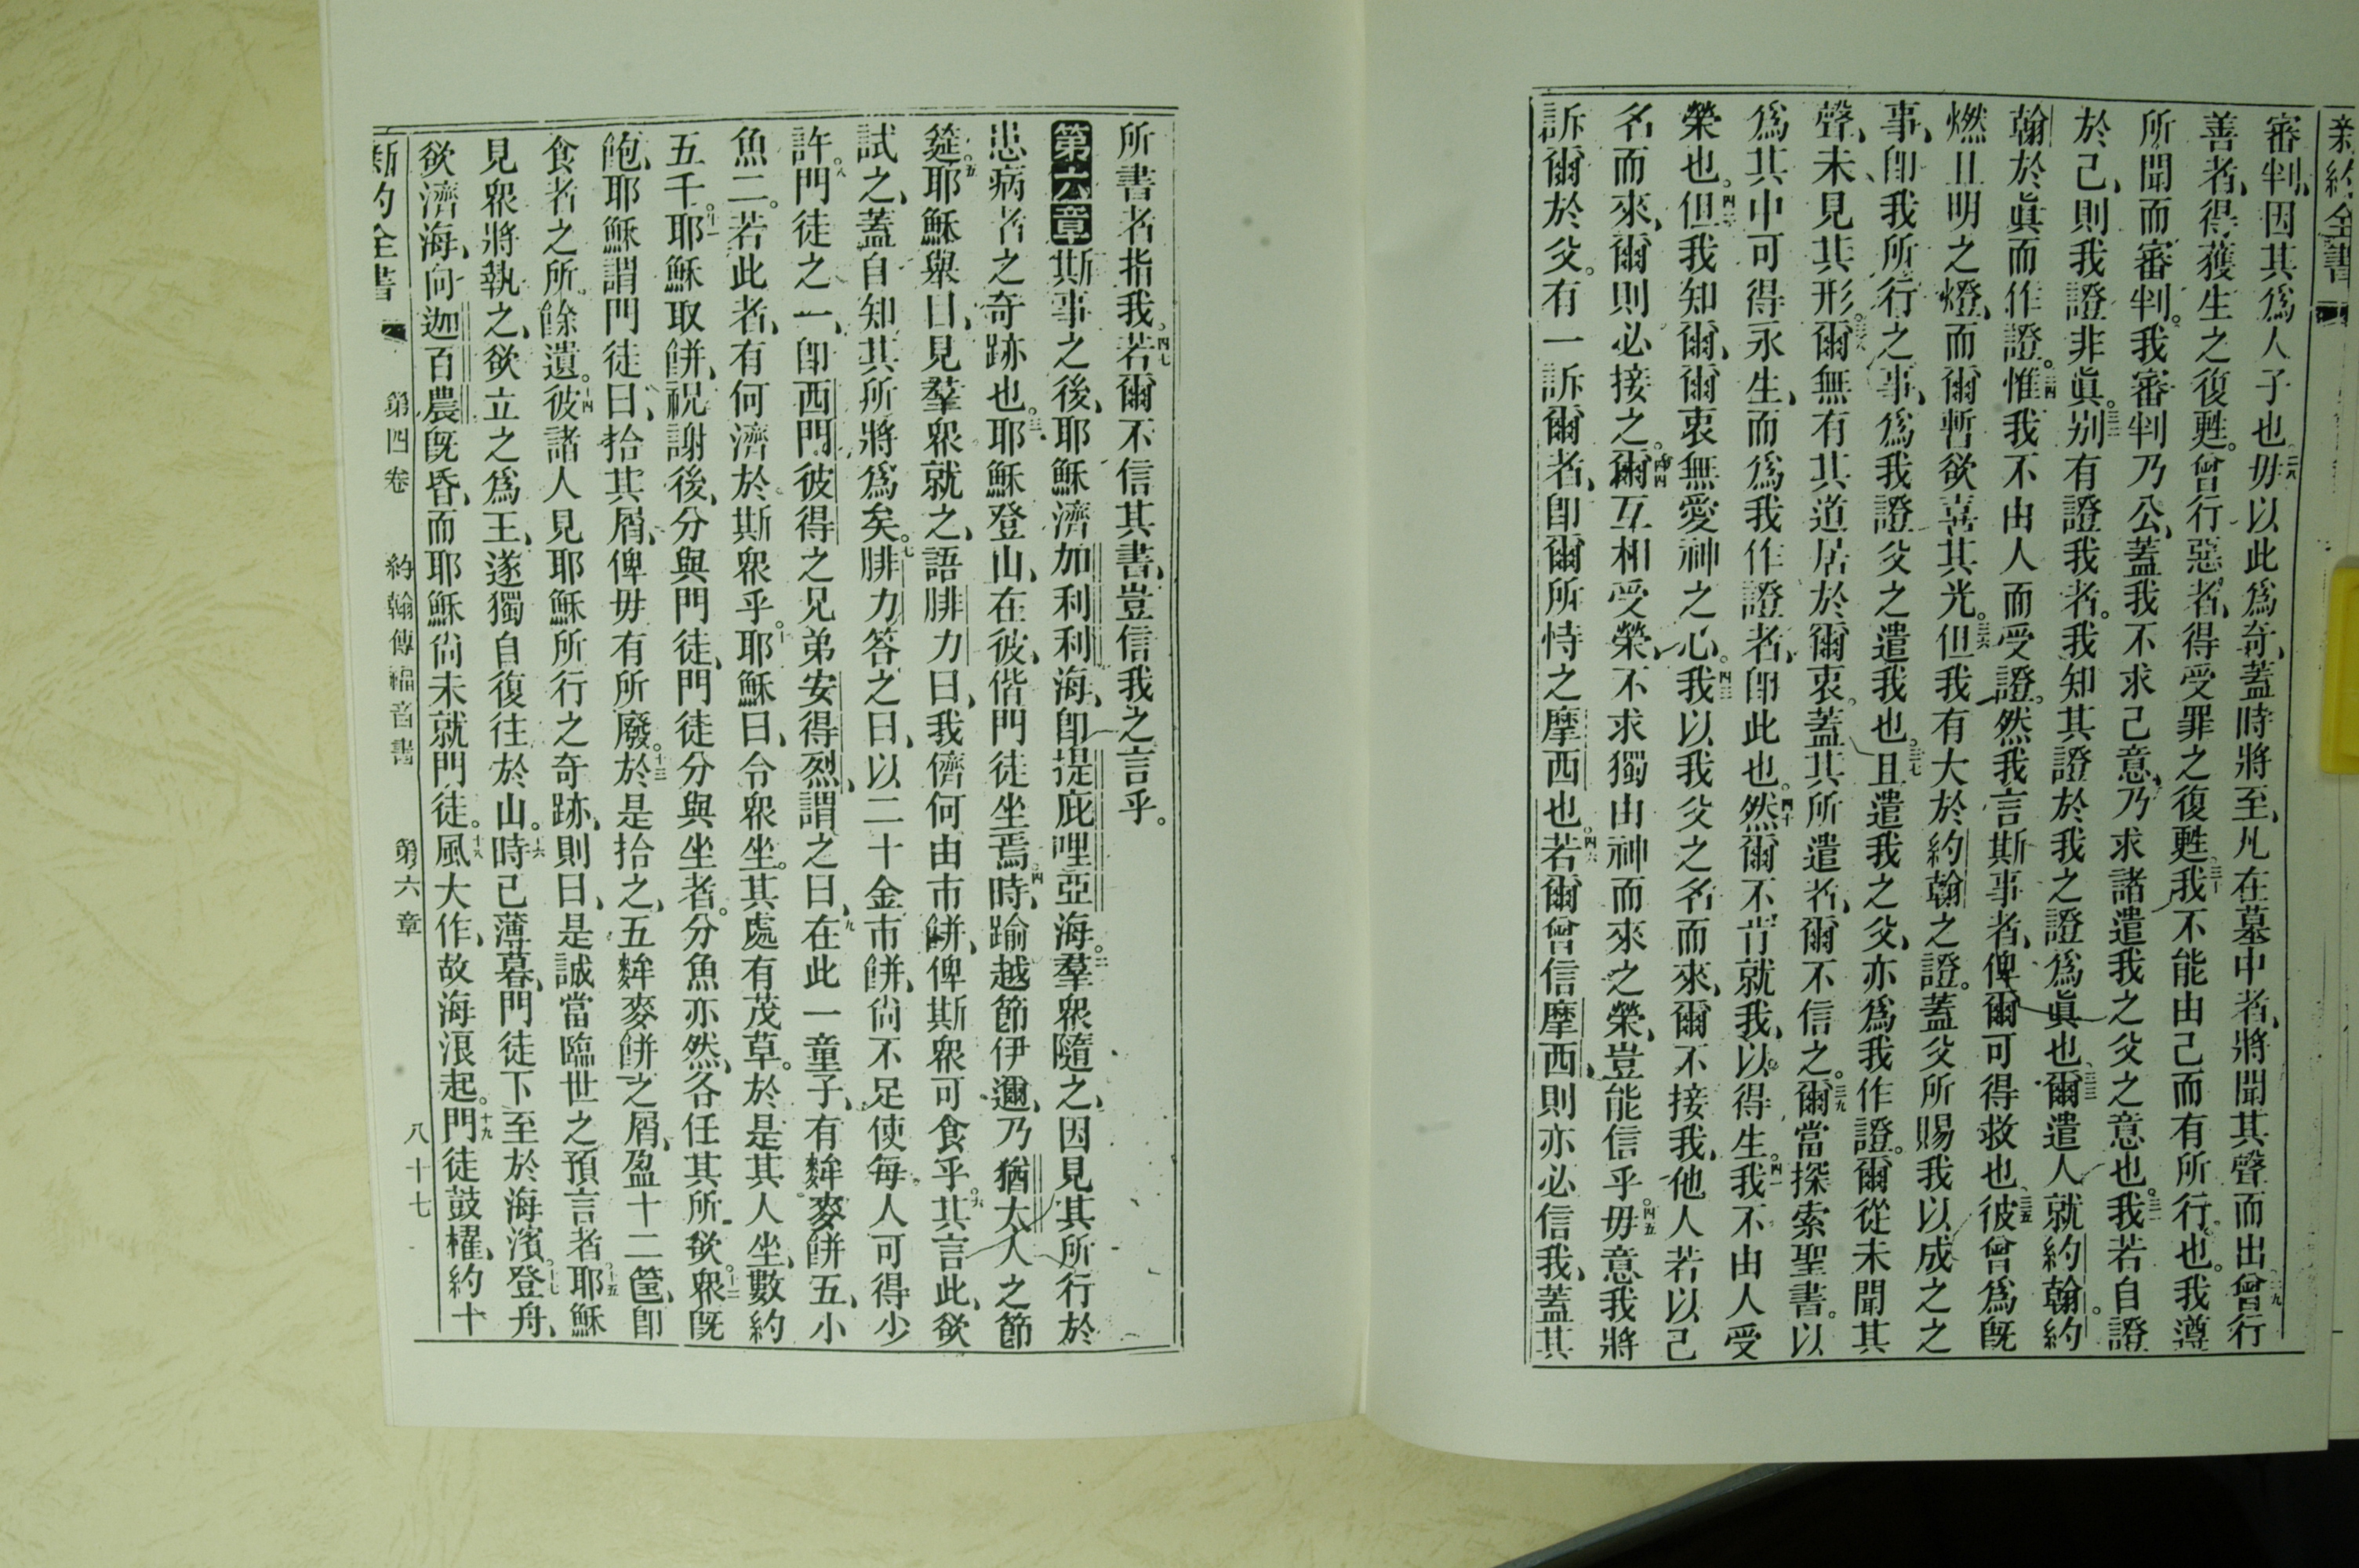 新約全書
審判、因其爲人子也。二八毋以此爲奇、蓋時將至、凡在墓中者、將聞其聲而出、二九曾行
善者、得獲生之復甦。曾行惡者、得受罪之復甦。三十我不能由己而有所行也。我遵
所聞而審判。我審判乃公、蓋我不求己意、乃求諸遣我之父之意也。三一我若自證
於己、則我證非眞。三二別有證我者。我知其證於我之證爲眞也、三三爾遣人就約翰。約
翰於眞而作證。三四惟我不由人而受證。然我言斯事者、俾爾可得救也、三五彼曾爲旣
燃且明之燈、而爾暫欲喜其光。三六但我有大於約翰之證。蓋父所賜我以成之之
事、卽我所行之事、爲我證父之遣我也。三七且遣我之父、亦爲我作證。爾從未聞其
聲、未見其形。三八爾無有其道居於爾衷。蓋其所遣者、爾不信之。三九爾當探索聖書。以
爲其中可得永生、而爲我作證者、卽此也。四十然爾不肯就我、以得生。四一我不由人受
榮也。四二但我知爾、爾衷無愛神之心。四三我以我父之名而來、爾不接我、他人若以己
名而來、爾則必接之。四四爾互相受榮、不求獨由神而來之榮、豈能信乎。四五毋意我將
訴爾於父。有一訴爾者、卽爾所恃之摩西也。四六若爾曾信摩西、則亦必信我、蓋其
所書者指我。四七若爾不信其書、豈信我之言乎。
第六章 斯事之後、耶穌濟加利利海、卽提庇哩亞海。二羣眾隨之、因見其所行於
患病者之奇跡也。三耶穌登山、在彼、偕門徒坐焉。四時、踰越節伊邇、乃猶太人之節
筵。五耶穌舉目、見羣眾就之、語腓力曰、我儕何由市餅、俾斯眾可食乎。六其言此、欲
試之、蓋自知其所將爲矣。七腓力答之曰、以二十金市餅、尙不足使每人可得少
許。八門徒之一、卽西門彼得之兄弟安得烈、謂之曰、九在此一童子、有麰麥餅五、小
魚二。若此者、有何濟於斯眾乎。十耶穌曰、令眾坐。其處有茂草。於是其人坐、數約
五千。十一耶穌取餅、祝謝後、分與門徒、門徒分與坐者。分魚亦然、各任其所欲。十二眾旣
飽、耶穌謂門徒曰、拾其屑、俾毋有所廢。十三於是拾之、五麰麥餅之屑、盈十二筐、卽
食者之所餘遺。十四彼諸人見耶穌所行之奇跡、則曰、是誠當臨世之預言者。十五耶穌
見眾將執之、欲立之爲王、遂獨自復往於山。十六時已薄暮、門徒下至於海濱。十七登舟、
欲濟海、向迦百農。旣昏、而耶穌尙未就門徒。十八風大作、故海浪起。十九門徒鼓櫂、約十
新約全書 第四卷 約翰傳福音書 第六章 八十七